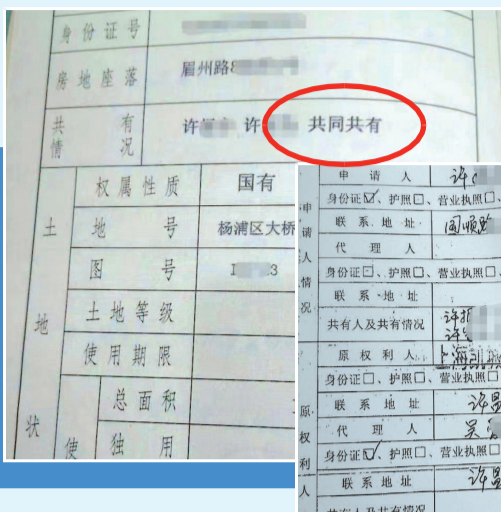 身份证号
房地座落 眉州路
共有情况 许 许 共同共有
土地状
权属性质 国有
地号 杨浦区大桥
图号 3
土地等级
使用期限
使
总面积
独用
申请人情况
申请人 许
身份证☑、护照□、营业执照□、
联系地址 国顺路
代理人
身份证□、护照□、营业执照□、
联系地址
共有人及共有情况 许
许
原权利人
原权利人 上海
身份证□、护照□、营业执照□
联系地址 许昌
代理人 吴
身份证☑、护照□、营业执照□
联系地址 许昌
共有人及共有情况